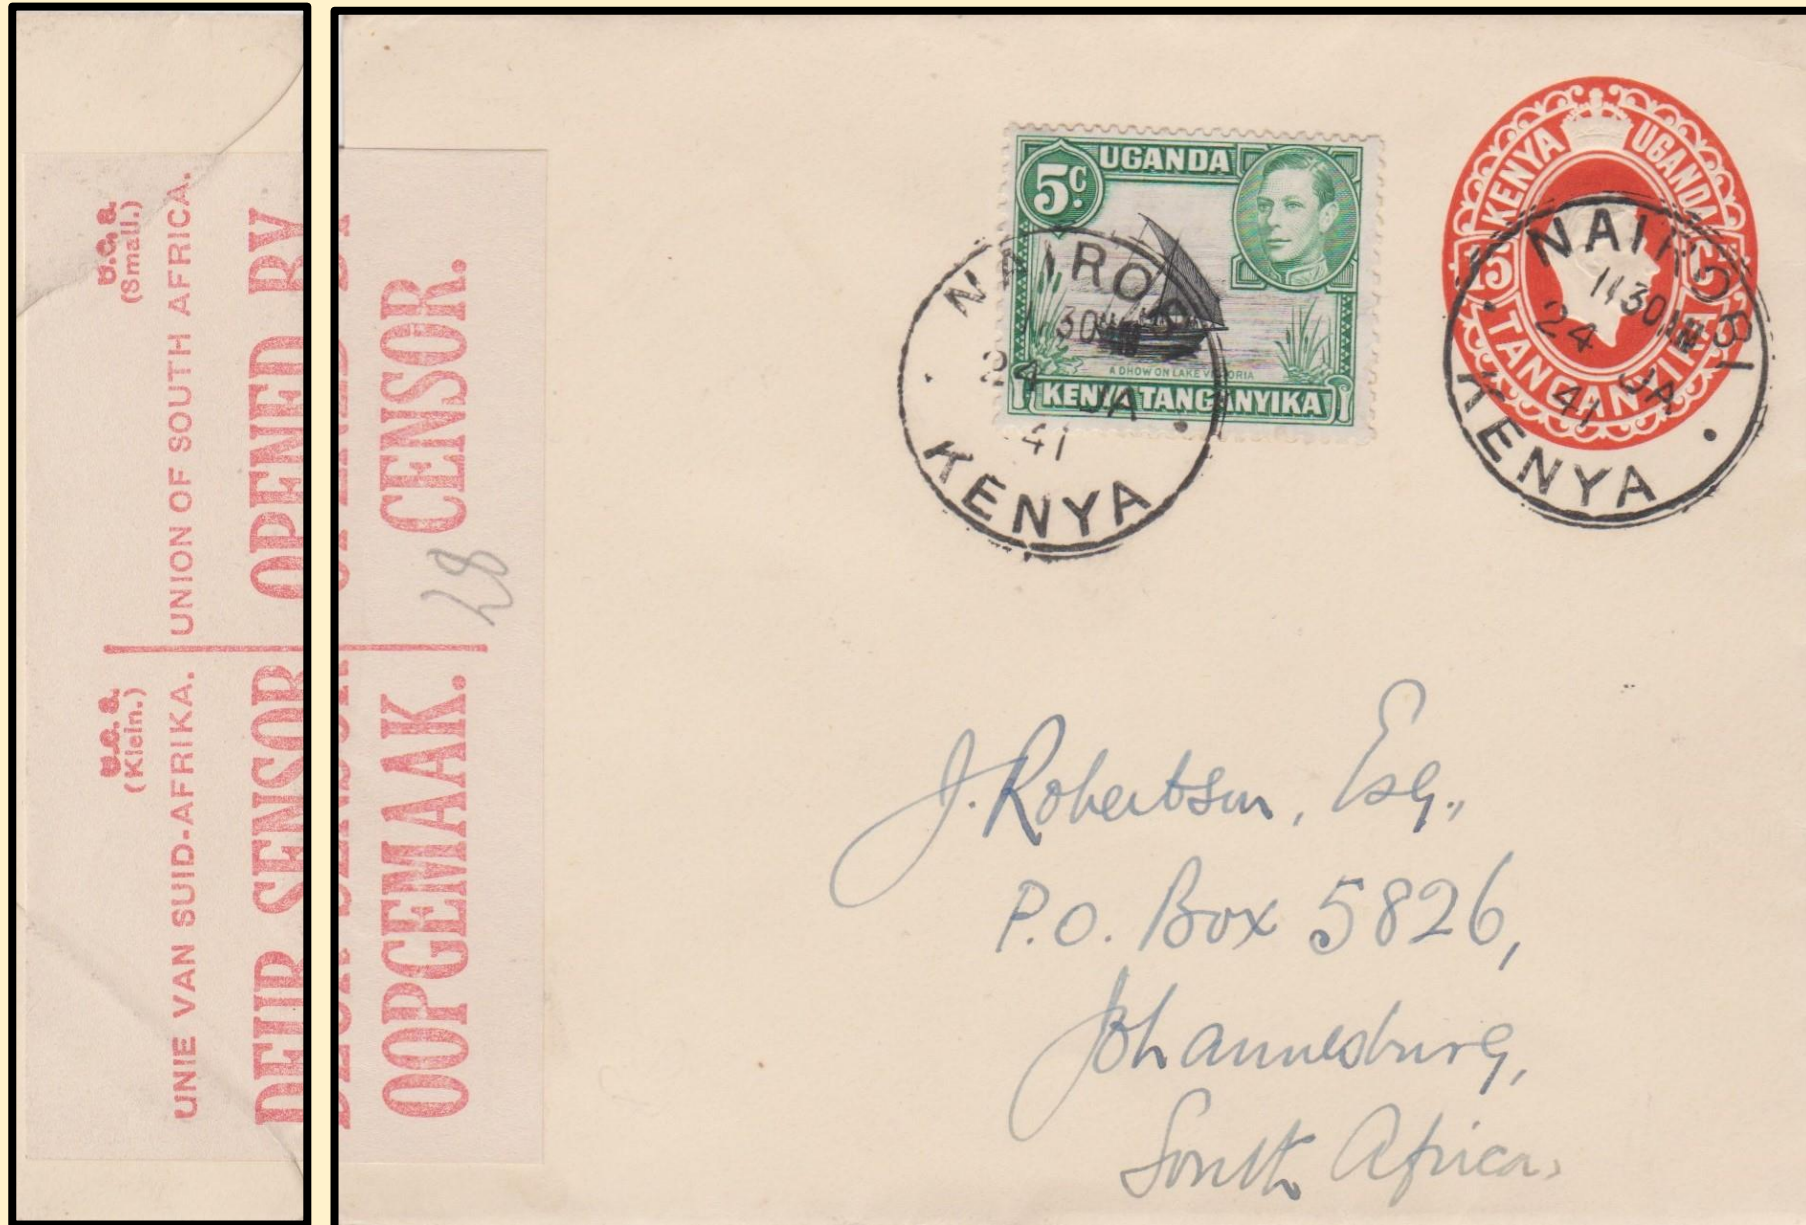 U.C. 8.
(Small.)
UNION OF SOUTH AFRICA.
OPENED BY
U.C. 8.
(Klein.)
UNIE VAN SUID-AFRIKA.
DEUR SENSOR
OPENED BY
CENSOR.
28
DEUR SENSOR
OOPGEMAAK.
5c.
UGANDA
A DHOW ON LAKE VICTORIA
KENYA TANGANYIKA
NAIROBI
1130AM
24 JA
41
KENYA
KENYA UGANDA
TANGANYIKA
NAIROBI
1130AM
24 JA
41
KENYA
J. Robertson, Esq.,
P.O. Box 5826,
Johannesburg,
South Africa.